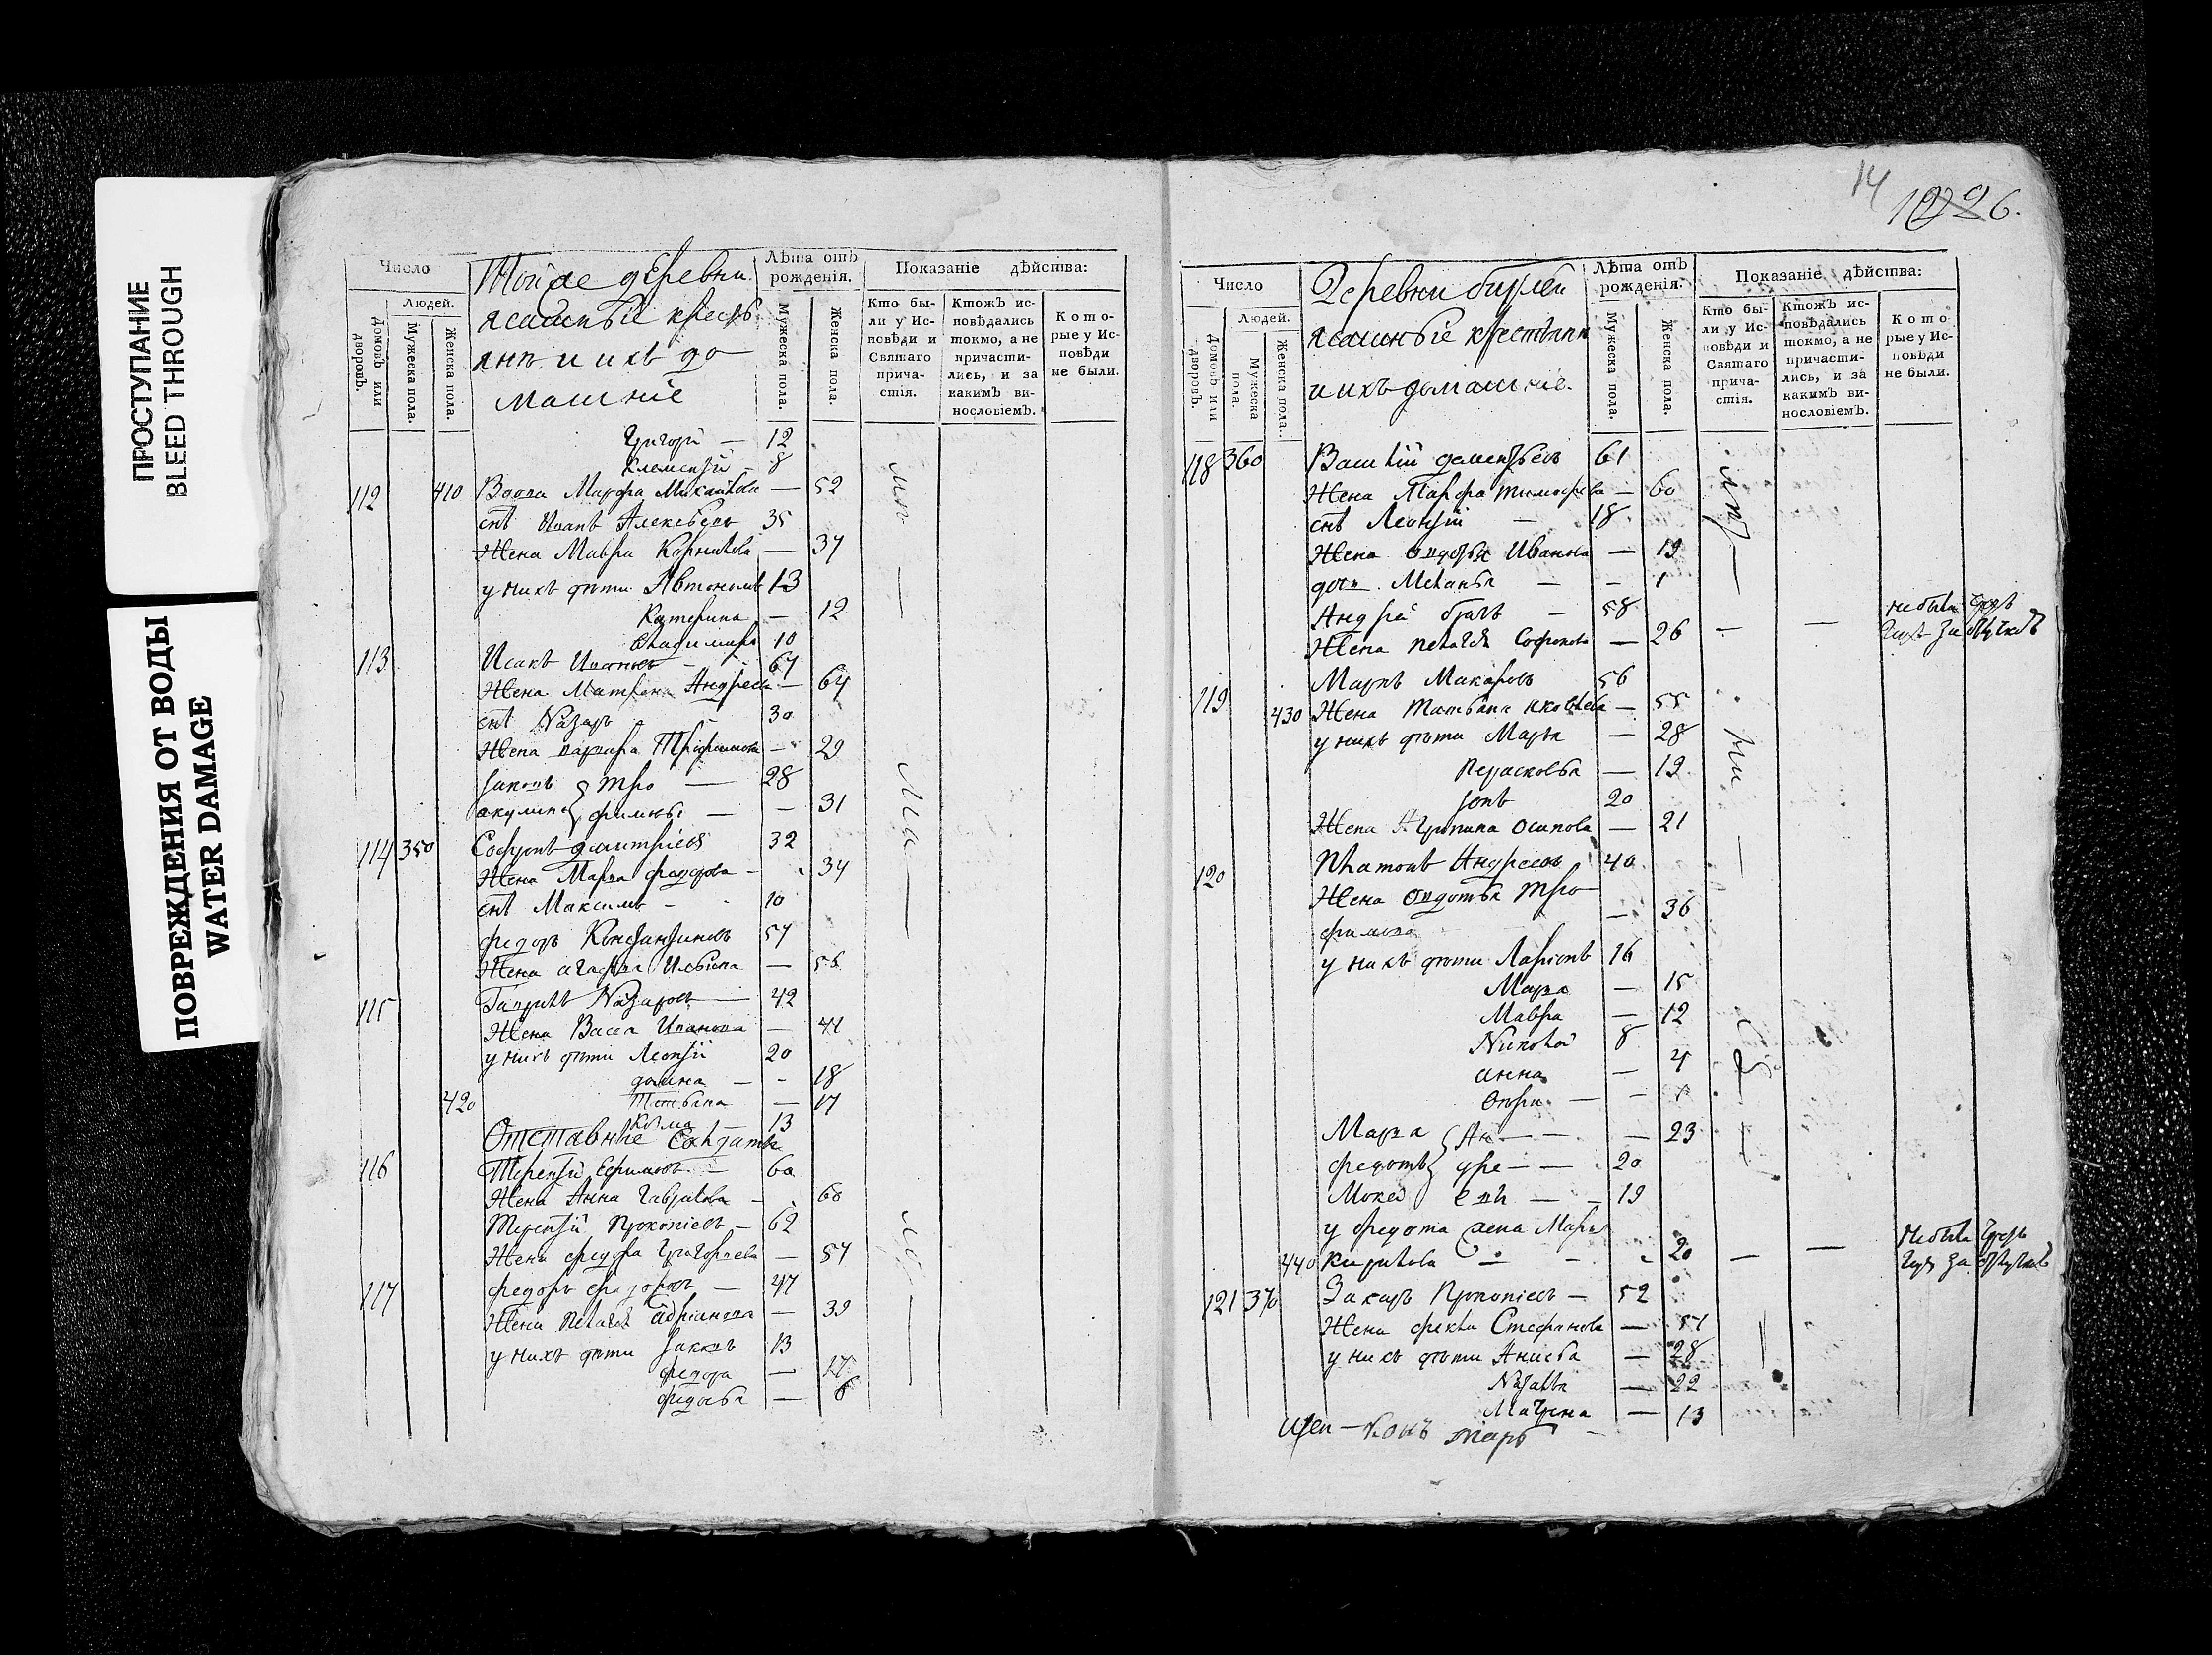 ПРОСТУПАНИЕ
BLEED THROUGH
ПОВРЕЖДЕНИЯ ОТ ВОДЫ
WATER DAMAGE
Число
Людей.
Домовъ или дворовъ.
Мужеска пола.
Женска пола.
Тойже деревни
ясашные кресть
янѣ и ихъ до
машнiе
Лѣта отъ рожденiя.
Мужеска пола.
Женска пола.
Показанiе дѣйства:
Кто бы-
ли у Ис-
повѣди и
Святаго
прича-
стiя.
Ктожъ ис-
повѣдались
токмо, а не
причасти-
лись, и за
какимъ ви-
нословiемъ.
Кото-
рые у Ис-
повѣди
не были.
Григорй — 12
Клементiй 8
112 410 Вдова Марфа Михайлова — 52
снъ Иванъ Алексѣевъ 35
Жена Мавра Корнилова — 37
у нихъ дѣти Автономъ 13
Катерина — 12
Владимиръ 10
113 Исакъ Ивановъ 67
Жена Матрона Андреева — 64
снъ Назаръ 30
Жена Трофимова — 29
Iаковъ Тро — 28
акулина фимовы — 31
114 350 Софронъ Дмитрiевъ 32
Жена Марѳа федорова — 34
снъ Максимъ 10
федоръ Константиновъ 57
Жена агафья Ильина — 56
115 Гаврилъ Назаровъ — 42
Жена Васса Иванова — 41
у нихъ дѣти Леонтiй 20
домна — 18
420 Татьяна — 17
козма — 13
Отставные Салдаты
116 Терентiй Ефимовъ — 60
Жена Анна Гаврилова — 60
Терентiй Прокопiевъ — 62
Жена федора Григорьева — 57
117 федоръ федоровъ — 47
Жена Пелагея адрiанова — 39
у нихъ дѣти Iаковъ 13
федора — 17
федосья — 8
14
126.
Число
Людей.
Домовъ или дворовъ.
Мужеска пола.
Женска пола.
Деревни
ясашные крестьяня
и ихъ домашнiе.
Лѣта отъ рожденiя:
Мужеска пола.
Женска пола.
Показанiе дѣйства:
Кто бы-
ли у Ис-
повѣди и
Святаго
прича-
стiя.
Ктожъ ис-
повѣдались
токмо, а не
причасти-
лись, и за
какимъ ви-
нословiемъ.
Кото-
рые у Ис-
повѣди
не были.
118 360 Василiй дементьевъ 61
Жена Марфа тимофеева — 60
снъ Леонтiй — 18
Жена Авдотья Иванова — 19
дочь Меланья — 1
Андрей братъ — 58
Жена пелагея Софонова — 26 — — не была
за отлучкою
119 Маркъ Макаровъ 56
430 Жена Татьяна яковлева — 55
у нихъ дѣти Марья — 28
Парасковья — 19
Iовъ 20
Жена Агрипина осипова — 21
120 Платонъ Андреевъ 40
Жена Овдотья Тро
фимова — 36
у нихъ дѣти Ларiонъ 16
Марѳа — 15
Мавра — 12
Николай 8
анна — 4
Марѳа Ан — 23
федотъ дре — 20
Мокей евы — 19
у федота жена Марья
440 Кирилова — 20 — — Не была
за отлучкою
121 370 Захаръ Прокопiевъ — 52
Жена фекла Стефанова — 51
у нихъ дѣти Анисья — 28
Наталья — 22
Матрена — 13